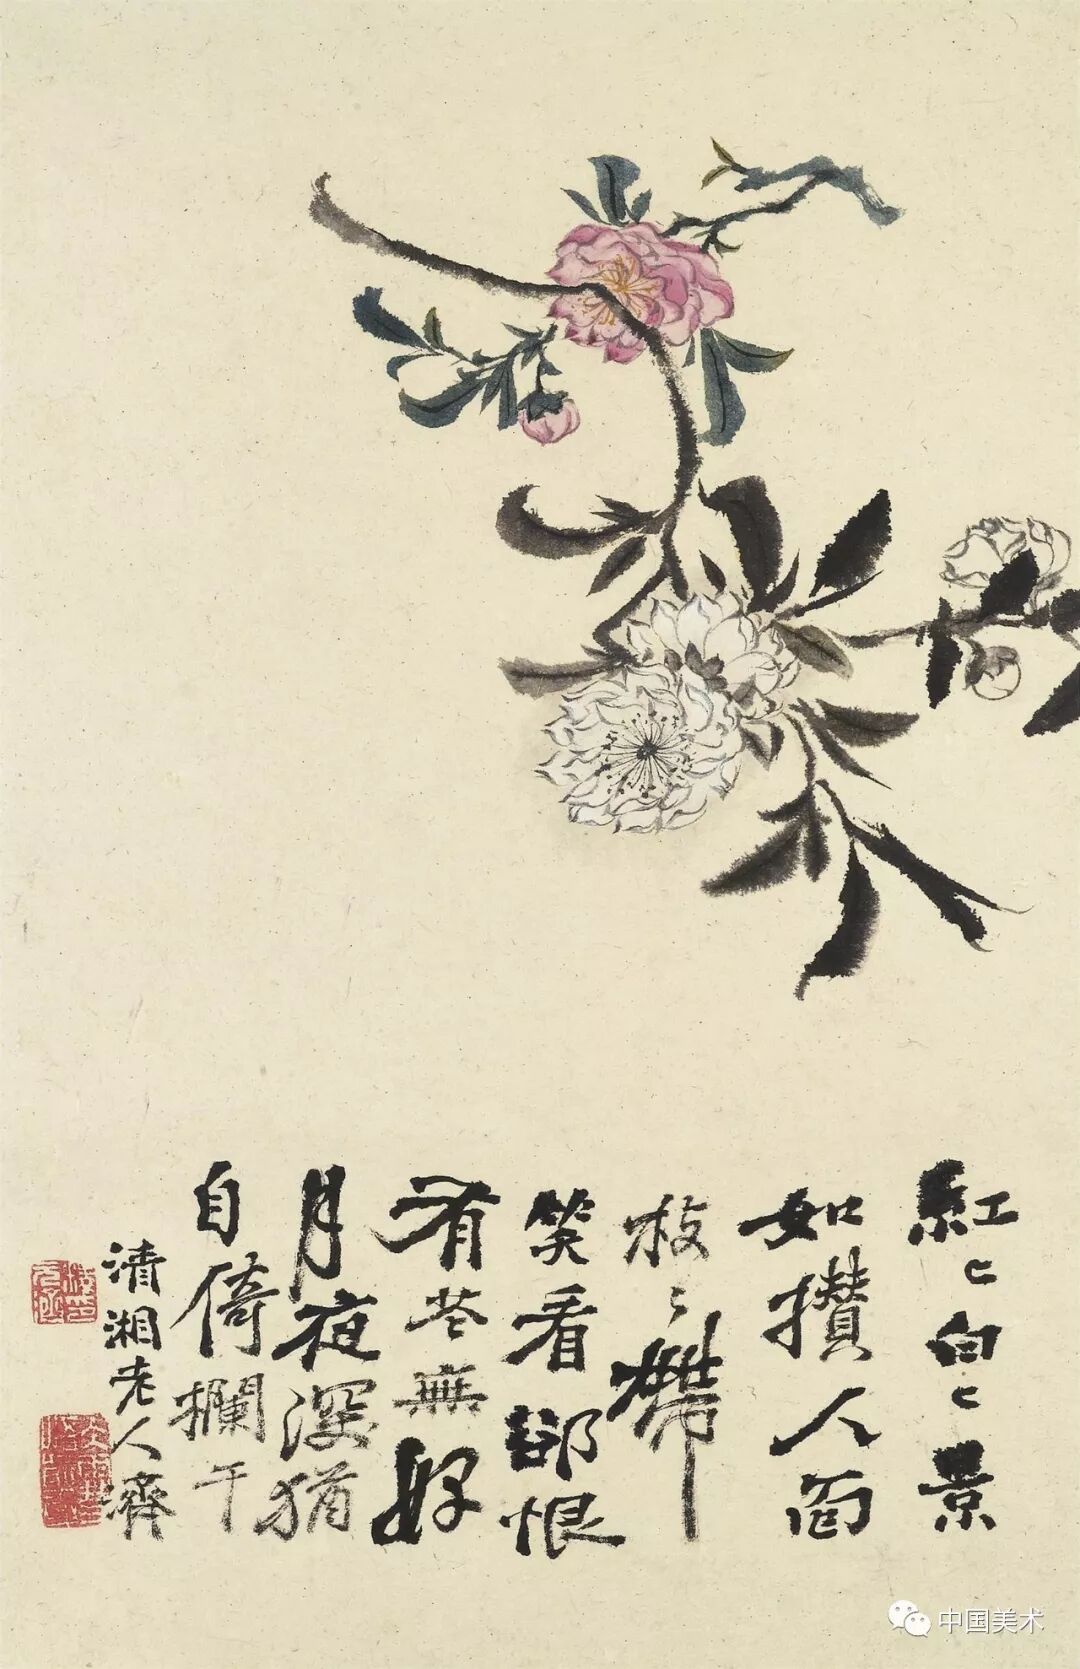 紅〻白〻景
如攢人面
枝〻帶
笑看卻恨
有花無好
月夜深猶
自倚欄干
清湘老人濟
中国美术